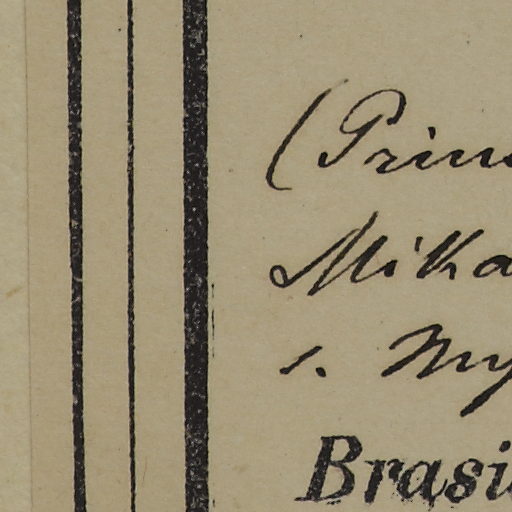 (Prin
Mika
1. My
Brasi